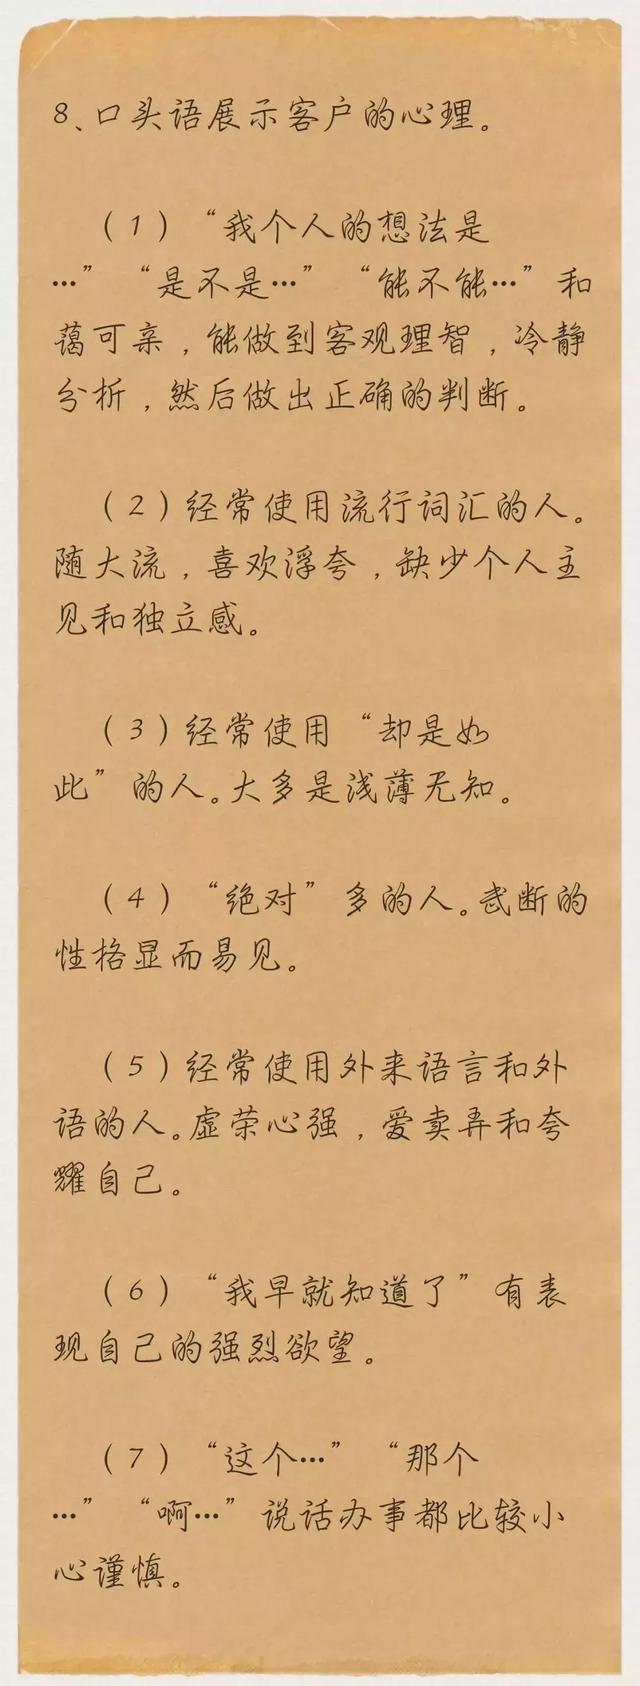 8、口头语展示客户的心理。
（1）“我个人的想法是
…”“是不是…”“能不能…”和
蔼可亲，能做到客观理智，冷静
分析，然后做出正确的判断。
（2）经常使用流行词汇的人。
随大流，喜欢浮夸，缺少个人主
见和独立感。
（3）经常使用“却是如
此”的人。大多是浅薄无知。
（4）“绝对”多的人。武断的
性格显而易见。
（5）经常使用外来语言和外
语的人。虚荣心强，爱卖弄和夸
耀自己。
（6）“我早就知道了”有表
现自己的强烈欲望。
（7）“这个…”“那个
…”“啊…”说话办事都比较小
心谨慎。